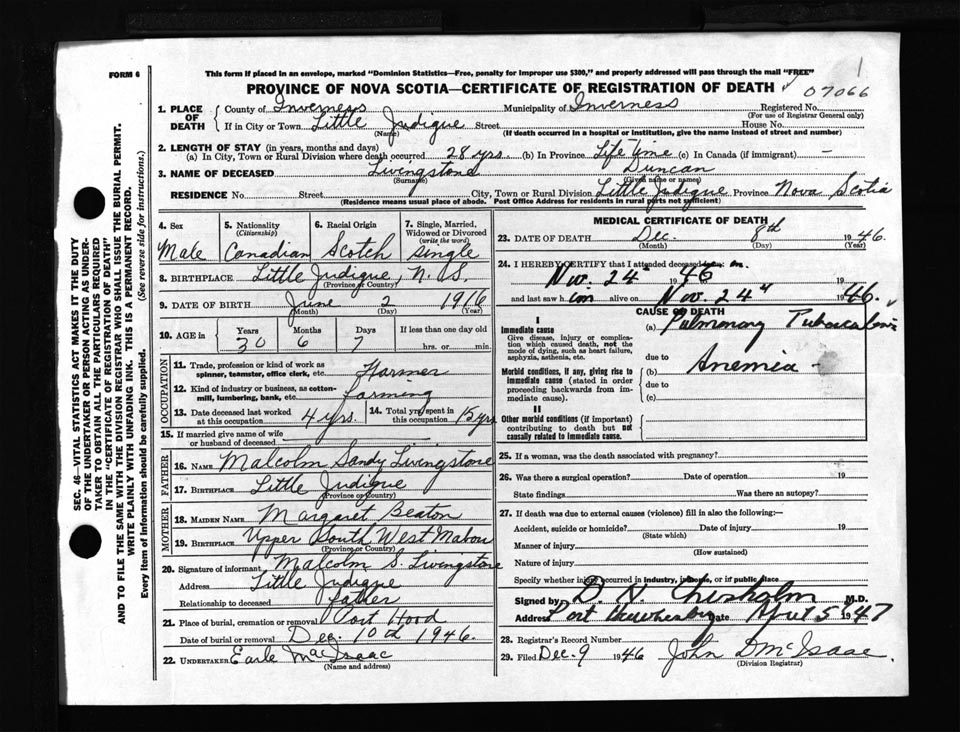 FORM 6
This form if placed in an envelope, marked "Dominion Statistics—Free, penalty for improper use $300," and properly addressed will pass through the mail "FREE"
1
PROVINCE OF NOVA SCOTIA—CERTIFICATE OF REGISTRATION OF DEATH
07066
1. PLACE OF DEATH County of Inverness Municipality of Inverness Registered No.
(For use of Registrar General only)
If in City or Town Little Judique Street House No.
(Name) (If death occurred in a hospital or institution, give the name instead of street and number)
2. LENGTH OF STAY (in years, months and days)
(a) In City, Town or Rural Division where death occurred 28 yrs. (b) In Province Life Time (c) In Canada (if immigrant) —
3. NAME OF DECEASED Livingstond Duncan
(Surname) (Given name or names)
RESIDENCE No. Street City, Town or Rural Division Little Judique Province Nova Scotia
(Residence means usual place of abode. Post Office Address for residents in rural parts not sufficient)
4. Sex 5. Nationality (Citizenship) 6. Racial Origin 7. Single, Married, Widowed or Divorced (write the word)
Male Canadian Scotch single
8. BIRTHPLACE Little Judique, N. S.
(Province or Country)
9. DATE OF BIRTH June 2 1916
(Month) (Day) (Year)
10. AGE in Years Months Days If less than one day old
30 6 7 hrs. or min.
OCCUPATION
11. Trade, profession or kind of work as spinner, teamster, office clerk, etc. Farmer
12. Kind of industry or business, as cotton-mill, lumbering, bank, etc. farming
13. Date deceased last worked at this occupation 4 yrs. 14. Total yrs. spent in this occupation 15 yrs
15. If married give name of wife or husband of deceased
FATHER
16. NAME Malcolm Sandy Livingstone
17. BIRTHPLACE Little Judique
(Province or Country)
MOTHER
18. MAIDEN NAME Margaret Beaton
19. BIRTHPLACE Upper South West Mabou
(Province or Country)
20. Signature of informant Malcolm S. Livingstone
Address Little Judique
Relationship to deceased father
21. Place of burial, cremation or removal Port Hood
Date of burial or removal Dec. 10th 1946.
22. UNDERTAKER Earle MacIsaac
(Name and address)
MEDICAL CERTIFICATE OF DEATH
23. DATE OF DEATH Dec. 8th 1946.
(Month) (Day) (Year)
24. I HEREBY CERTIFY that I attended deceased on
Nov. 24" 1946
and last saw him alive on Nov. 24" 1946.
CAUSE OF DEATH
I
Immediate cause
Give disease, injury or complication which caused death, not the mode of dying, such as heart failure, asphyxia, asthenia, etc.
(a) Pulmonary Tuberculosis
due to
Morbid conditions, if any, giving rise to immediate cause (stated in order proceeding backwards from immediate cause).
(b) Anemia -
due to
(c)
II
Other morbid conditions (if important) contributing to death but not causally related to immediate cause.
25. If a woman, was the death associated with pregnancy?
26. Was there a surgical operation? Date of operation 19
State findings Was there an autopsy?
27. If death was due to external causes (violence) fill in also the following:—
Accident, suicide or homicide? Date of injury 19
(State which)
Manner of injury
(How sustained)
Nature of injury
Specify whether injury occurred in industry, in home, or if public place
Signed by D. H. Chisholm M.D.
Address Port Hawkesbury Date April 5 1947
28. Registrar's Record Number
29. Filed Dec. 9 1946 John D McIsaac.
(Division Registrar)
SEC. 46—VITAL STATISTICS ACT MAKES IT THE DUTY
OF THE UNDERTAKER OR PERSON ACTING AS UNDER-
TAKER TO OBTAIN ALL THE PARTICULARS REQUIRED
IN THE "CERTIFICATE OF REGISTRATION OF DEATH"
AND TO FILE THE SAME WITH THE DIVISION REGISTRAR WHO SHALL ISSUE THE BURIAL PERMIT.
WRITE PLAINLY WITH UNFADING INK. THIS IS A PERMANENT RECORD.
Every item of information should be carefully supplied. (See reverse side for instructions.)